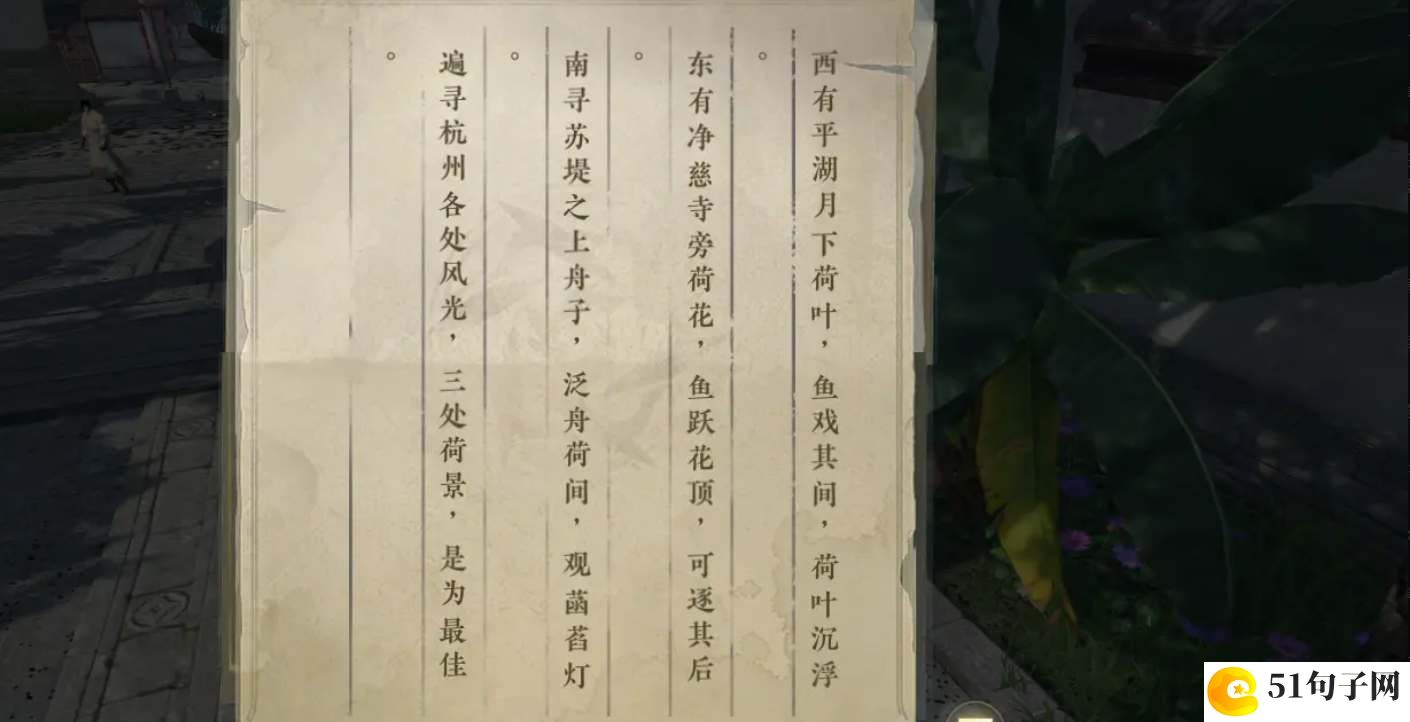 西有平湖月下荷叶，鱼戏其间，荷叶沉浮
。
东有净慈寺旁荷花，鱼跃花顶，可逐其后
。
南寻苏堤之上舟子，泛舟荷间，观菡萏灯
。
遍寻杭州各处风光，三处荷景，是为最佳
。
51句子网